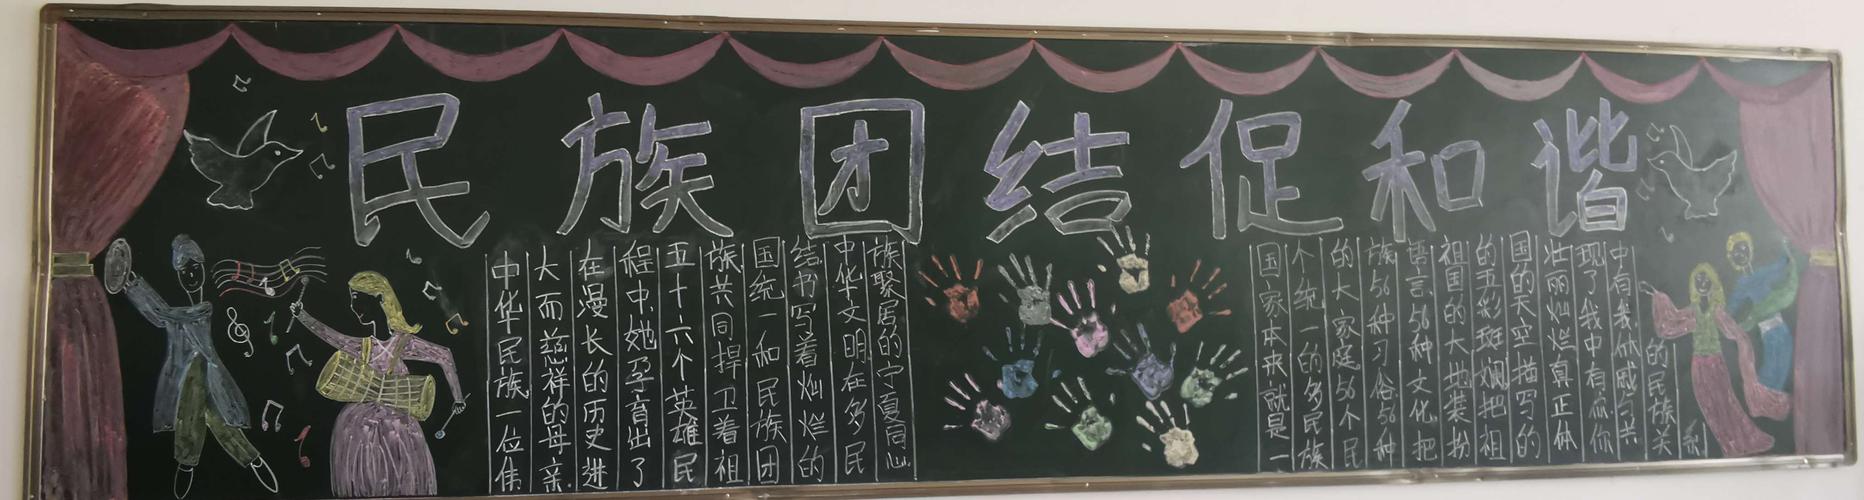 民族团结促和谐
中华民族一位伟
大而慈祥的母亲.
在漫长的历史进
程中,她孕育出了
五十六个英雄民
族共同捍卫着祖
国统一和民族团
结书写着灿烂的
中华文明在多民
族聚居的宁夏同心
国家本来就是一
个统一的多民族
的大家庭56个民
族56种习俗56种
语言56种文化把
祖国的大地装扮
的五彩斑斓把祖
国的天空描写的
壮丽灿烂真正体
现了我中有你你
中有我休戚与共
的民族关
系